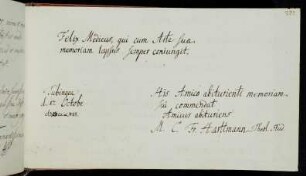 Felix Medicus, qui cum Arte sua
memoriam semper conjungit.
Tubingae
d. Octobr
His Amico abiturienti memoriam
sui commendat
Amicus abituriens
M. C. Fr. Hartmann. Theol. Stud